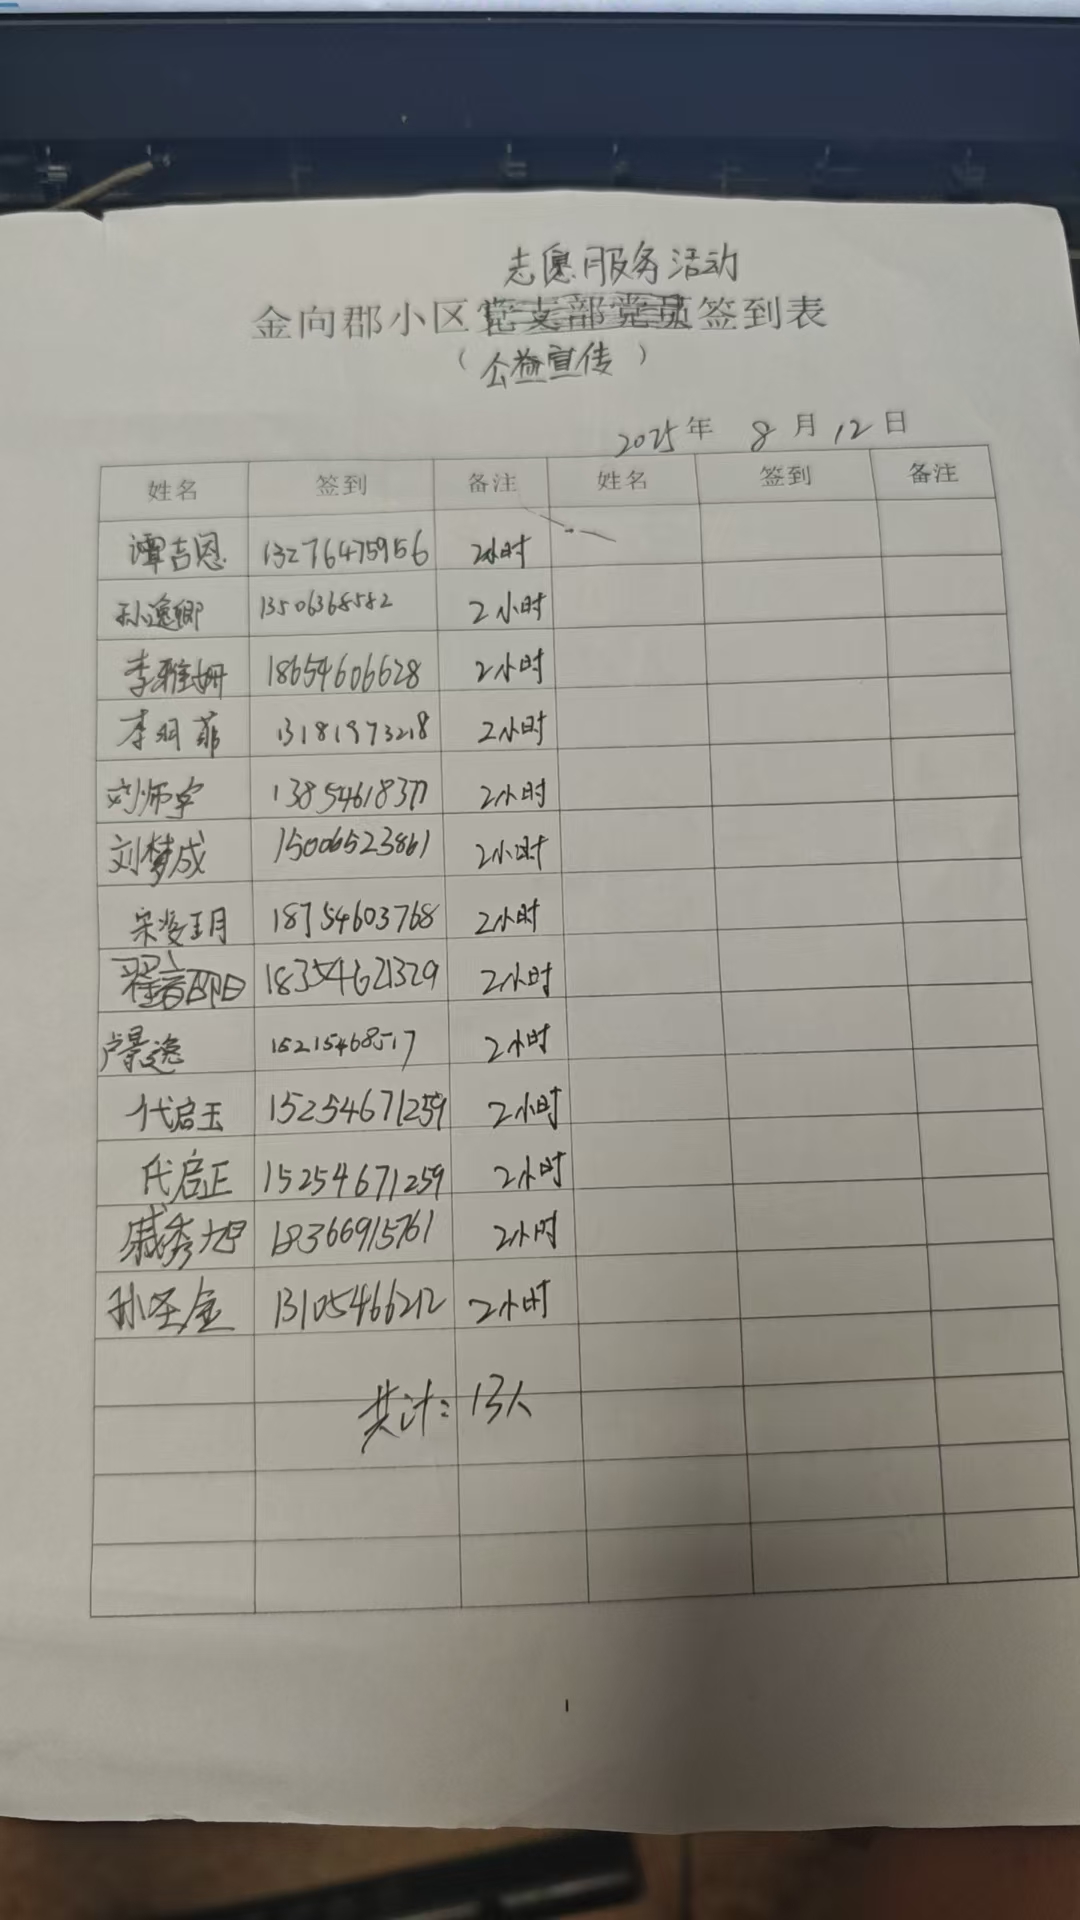 志愿服务活动
金向郡小区党支部党员签到表
（公益宣传）
2025年 8月12日
姓名 签到 备注 姓名 签到 备注
谭吉恩 13276475956 2小时
孙逸卿 13506368582 2小时
李雅姗 18654606628 2小时
李羽菲 13181973218 2小时
刘师宇 13854618377 2小时
刘梦成 15006523861 2小时
宋姿玥 18754603768 2小时
18354671329 2小时
卢景逸 15215468517 2小时
代启玉 15254671259 2小时
代启正 15254671259 2小时
戚秀旭 18366915761 2小时
孙圣金 13105466212 2小时
共计：13人
1